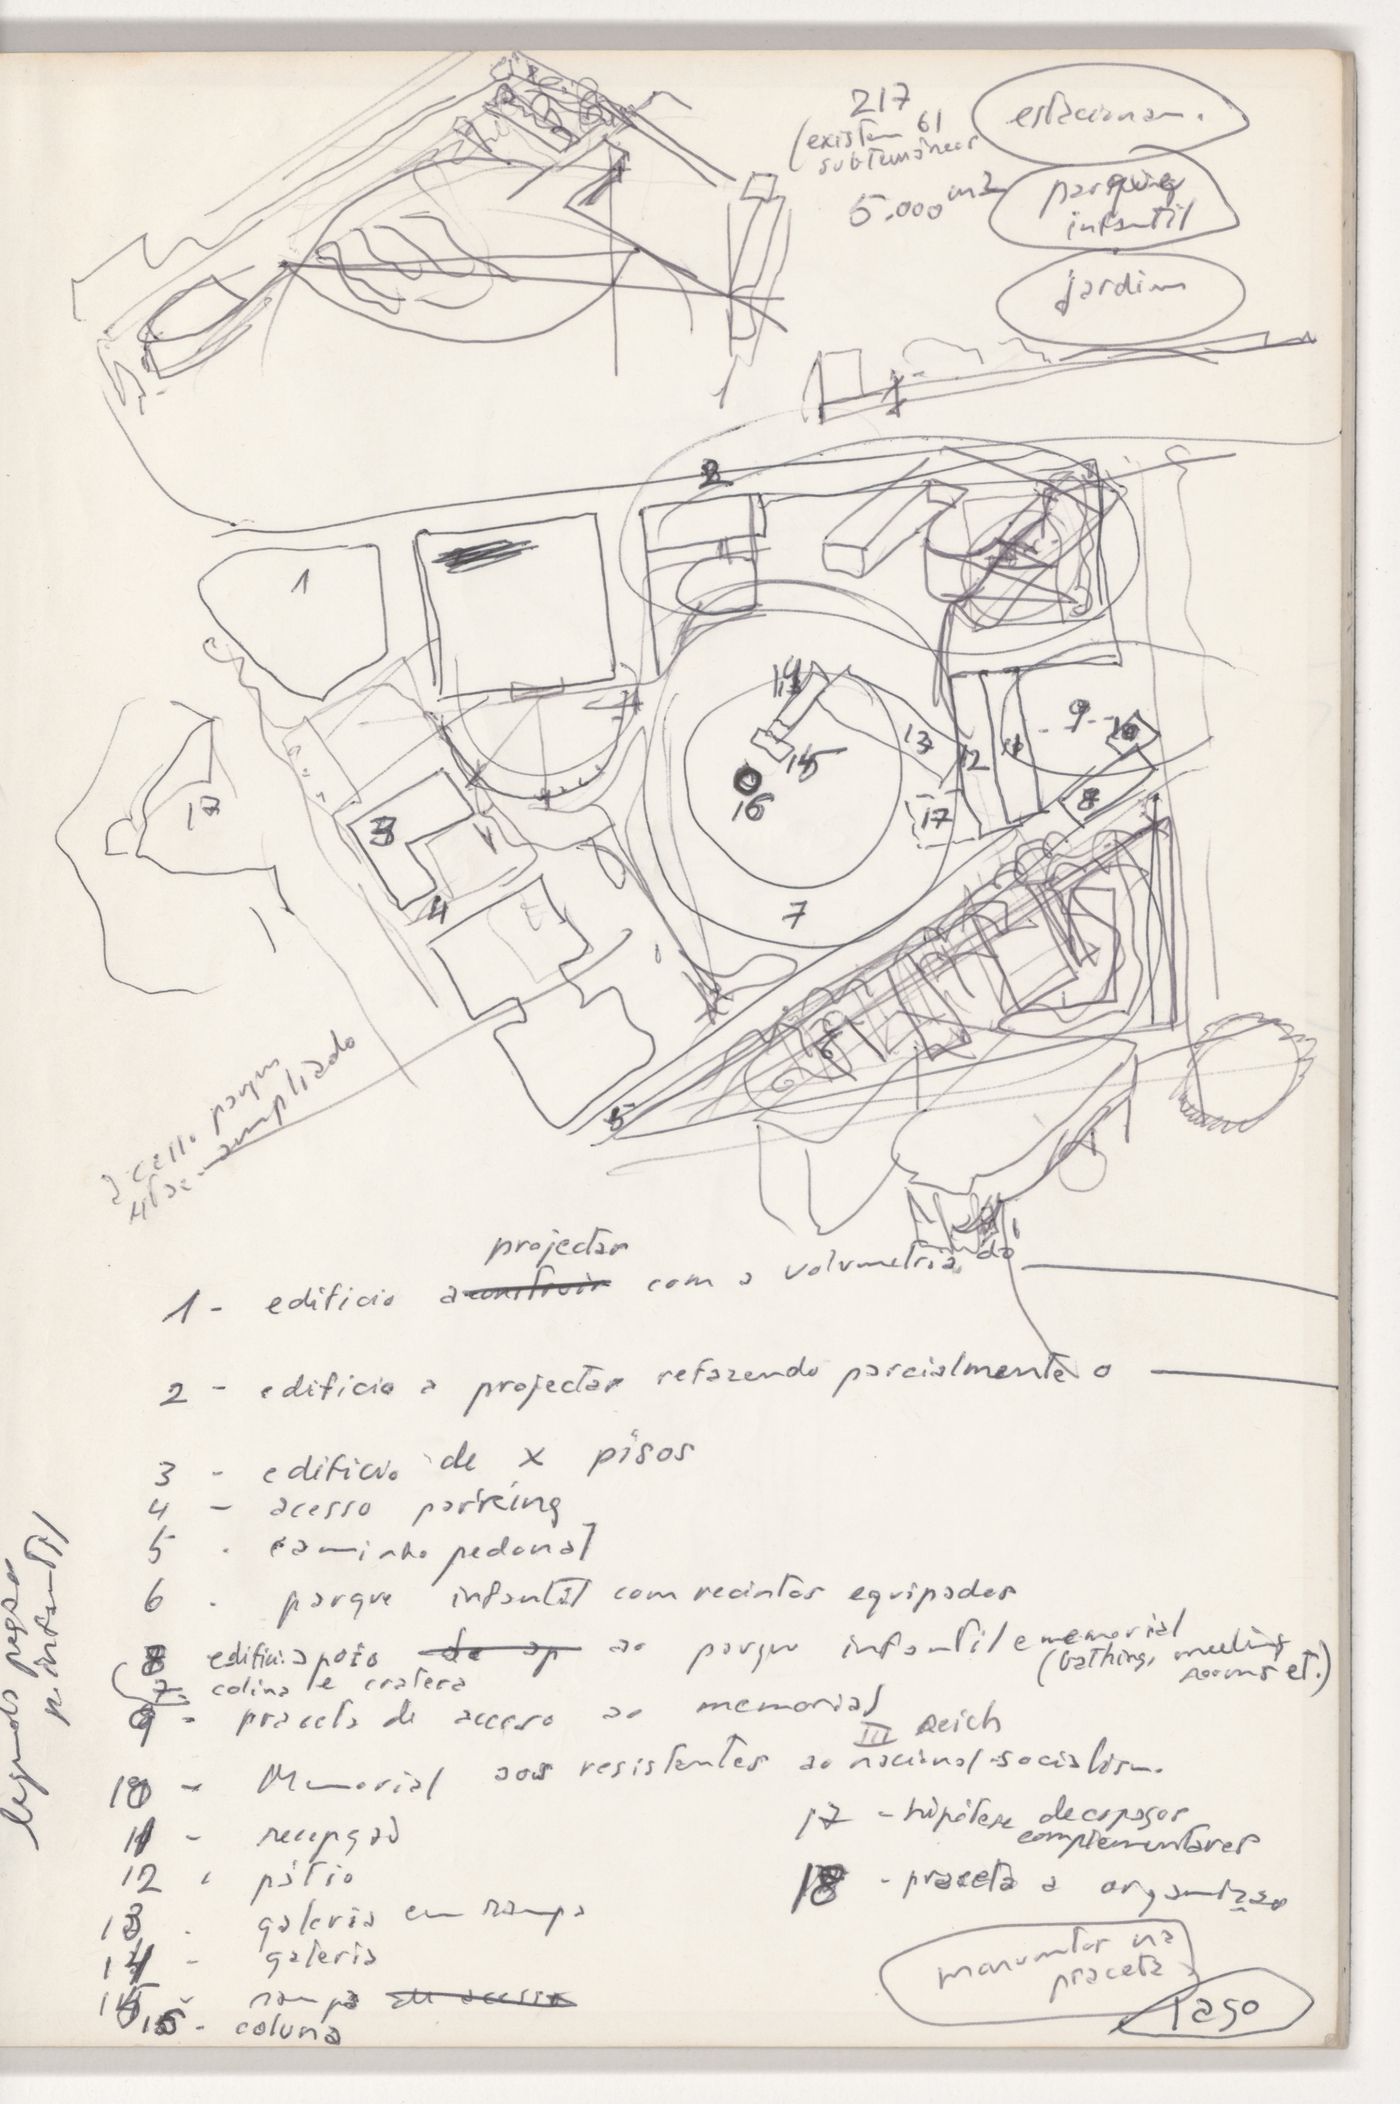 217
(existem 61
subterrâneos
5.000 m2
estacionam.
parque
infantil
jardim
2
1
3
4
5
6
7
8
9
10
11
12
13
14
15
16
17
18
parque
ampliado
projectar
1 - edificio a construir com a volumetria do
2 - edificio a projectar refazendo parcialmente o
3 - edificio de x pisos
4 - acesso parking
5 - caminho pedonal
6 - parque infantil com recintos equipados
8 edifici. apoio de ap ao parque infantil e memorial
(bathing, meeting
rooms et.)
7 - colina e cratera
9 - praceta de acesso ao memorial
III Reich
10 - Memorial aos resistentes ao nacional-socialism.
11 - recepção
12 - pátio
13 - galeria em rampa
14 - galeria
15 - rampa de acesso
16 - coluna
17 - hipótese de espaços
complementares
18 - praceta a organizar
na
praceta
lago
p. infantil